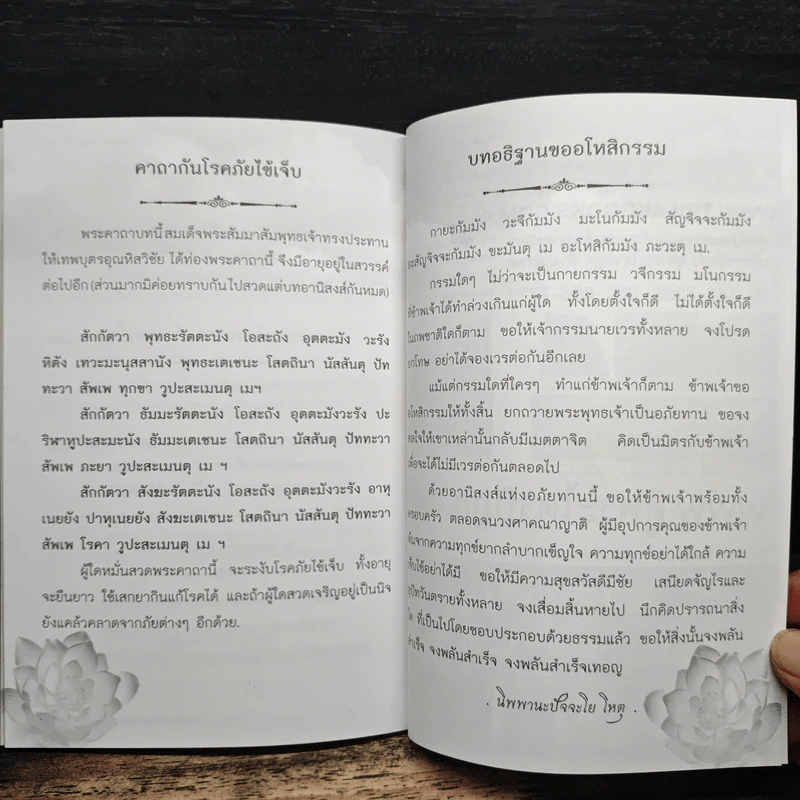 คาถากันโรคภัยไข้เจ็บ
พระคาถาบทนี้สมเด็จพระสัมมาสัมพุทธเจ้าทรงประทาน
ให้เทพบุตรอุณหิสวิชัย ได้ท่องพระคาถานี้ จึงมีอายุอยู่ในสวรรค์
ต่อไปอีก (ส่วนมากมิค่อยทราบกันไปสวดแต่บทอานิสงส์กันหมด)
สักกัตวา พุทธะรัตตะนัง โอสะถัง อุตตะมัง วะรัง
หิตัง เทวะมะนุสสานัง พุทธะเตเชนะ โสตถินา นัสสันตุ ปัท
ทะวา สัพเพ ทุกขา วูปะสะเมนตุ เมฯ
สักกัตวา ธัมมะรัตตะนัง โอสะถัง อุตตะมังวะรัง ปะ
ริฬาหูปะสะมะนัง ธัมมะเตเชนะ โสตถินา นัสสันตุ ปัททะวา
สัพเพ ภะยา วูปะสะเมนตุ เม ฯ
สักกัตวา สังฆะรัตตะนัง โอสะถัง อุตตะมังวะรัง อาหุ
เนยยัง ปาหุเนยยัง สังฆะเตเชนะ โสตถินา นัสสันตุ ปัททะวา
สัพเพ โรคา วูปะสะเมนตุ เม ฯ
ผู้ใดหมั่นสวดพระคาถานี้ จะระงับโรคภัยไข้เจ็บ ทั้งอายุ
จะยืนยาว ใช้เสกยากินแก้โรคได้ และถ้าผู้ใดสวดเจริญอยู่เป็นนิจ
ยังแคล้วคลาดจากภัยต่างๆ อีกด้วย.
บทอธิฐานขออโหสิกรรม
กายะกัมมัง วะจีกัมมัง มะโนกัมมัง สัญจิจจะกัมมัง
อะสัญจิจจะกัมมัง ขะมันตุ เม อะโหสิกัมมัง ภะวะตุ เม.
กรรมใดๆ ไม่ว่าจะเป็นกายกรรม วจีกรรม มโนกรรม
ที่ข้าพเจ้าได้ทำล่วงเกินแก่ผู้ใด ทั้งโดยตั้งใจก็ดี ไม่ได้ตั้งใจก็ดี
ในภพชาติใดก็ตาม ขอให้เจ้ากรรมนายเวรทั้งหลาย จงโปรด
ยกโทษ อย่าได้จองเวรต่อกันอีกเลย
แม้แต่กรรมใดที่ใครๆ ทำแก่ข้าพเจ้าก็ตาม ข้าพเจ้าขอ
อโหสิกรรมให้ทั้งสิ้น ยกถวายพระพุทธเจ้าเป็นอภัยทาน ขอจง
ดลใจให้เขาเหล่านั้นกลับมีเมตตาจิต คิดเป็นมิตรกับข้าพเจ้า
เพื่อจะได้ไม่มีเวรต่อกันตลอดไป
ด้วยอานิสงส์แห่งอภัยทานนี้ ขอให้ข้าพเจ้าพร้อมทั้ง
ครอบครัว ตลอดจนวงศาคณาญาติ ผู้มีอุปการคุณของข้าพเจ้า
พ้นจากความทุกข์ยากลำบากเข็ญใจ ความทุกข์อย่าได้ใกล้ ความ
เจ็บไข้อย่าได้มี ขอให้มีความสุขสวัสดีมีชัย เสนียดจัญไรและ
อุปัทวันตรายทั้งหลาย จงเสื่อมสิ้นหายไป นึกคิดปรารถนาสิ่ง
ใด ที่เป็นไปโดยชอบประกอบด้วยธรรมแล้ว ขอให้สิ่งนั้นจงพลัน
สำเร็จ จงพลันสำเร็จ จงพลันสำเร็จเทอญ
. นิพพานะปัจจะโย โหตุ .